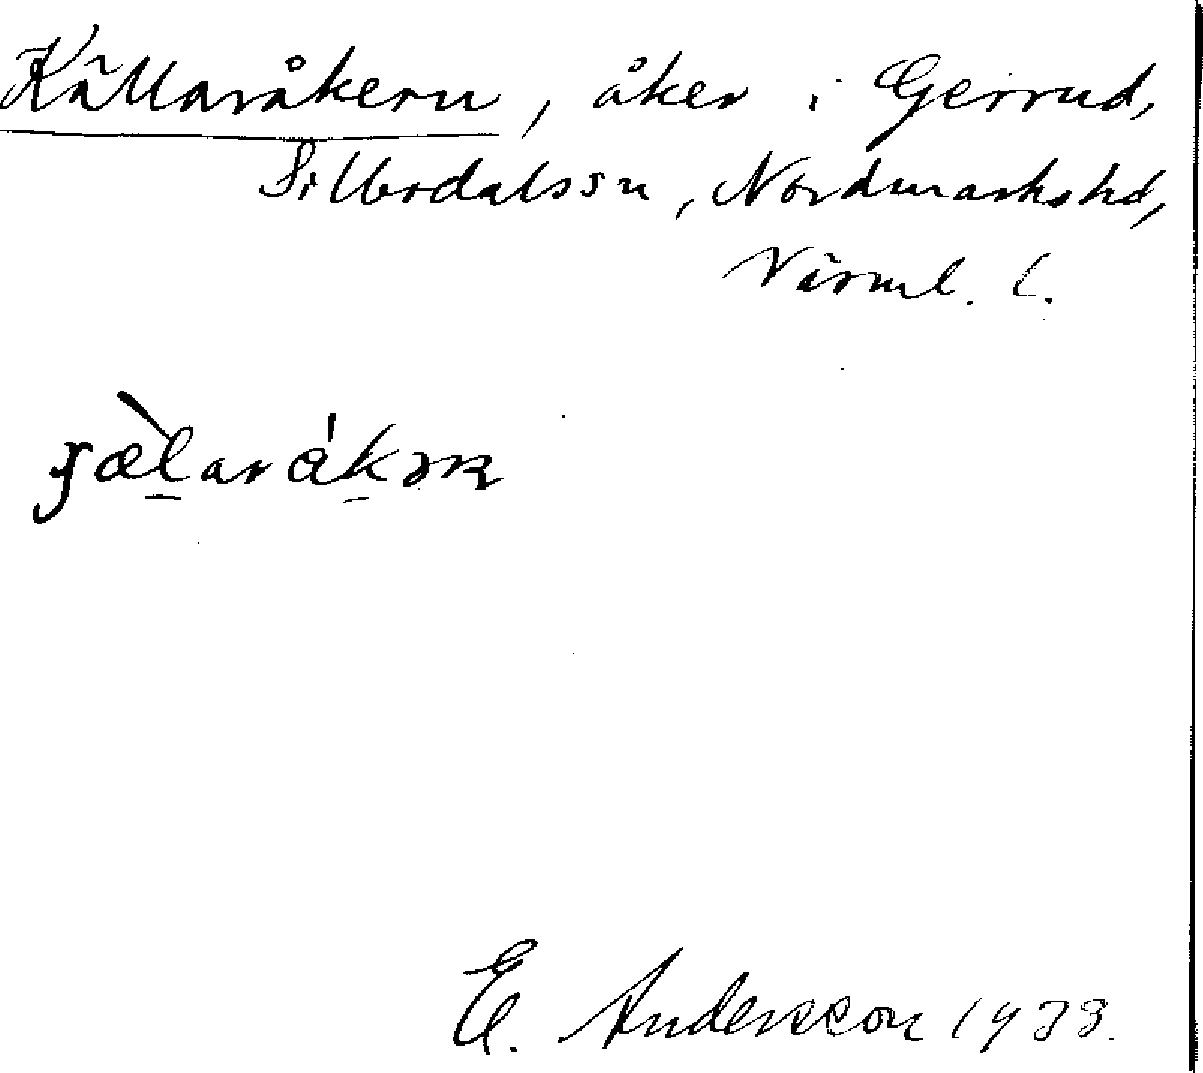 Källaråkern, åker i Gerrud,
Sillerudalssn, Nordmarkshd,
Värml. l.
E. Andersson 1933.